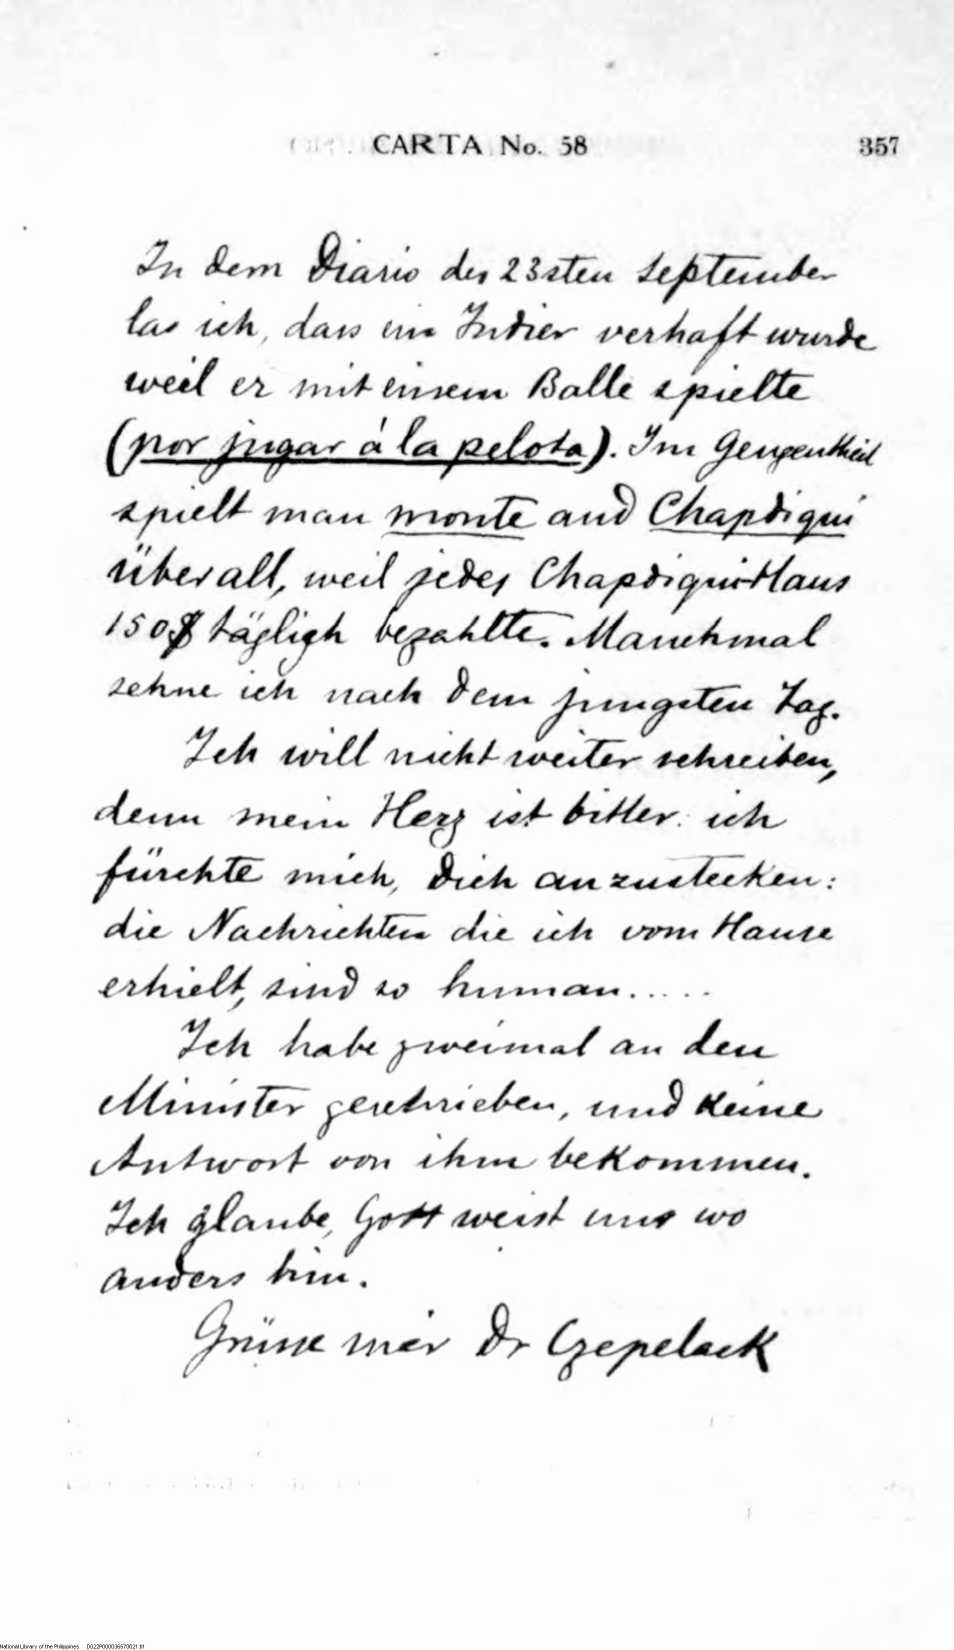 CARTA No. 58 357
In dem Diario des 23sten September
las ich, dass ein Indier verhaft wurde
weil er mit einem Balle spielte
(por jugar á la pelota). Im Gegentheil
spielt man monte and Chapdiqui
überall, weil jedes Chapdiqui-Haus
150$ täglich bezahlte. Manchmal
sehne ich nach dem jungsten Tag.
Ich will nicht weiter schreiben,
denn mein Herz ist bitter: ich
fürchte mich, Dich anzustecken:
die Nachrichten die ich vom Hause
erhielt, sind so human.....
Ich habe zweimal an den
Minister geschrieben, und keine
Antwort von ihm bekommen.
Ich glaube, Gott weist uns wo
anders hin.
Grüsse mir Dr Czepelack
National Library of the Philippines